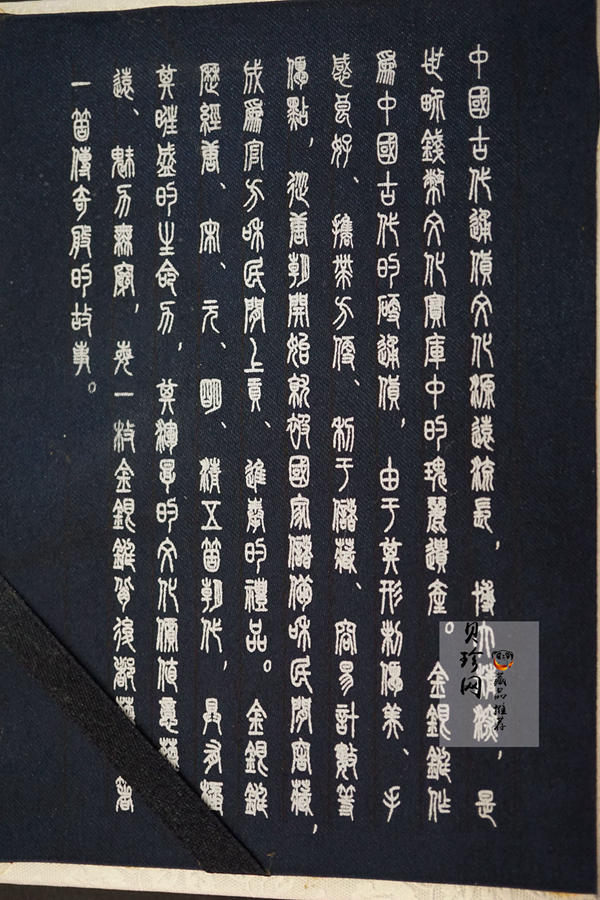 中國古代通貨文化源遠流長，博大精深，是
世界錢幣文化寶庫中的瑰麗遺産。金銀錠作
爲中國古代的硬通貨，由于其形制優美、手
感良好、携帶方便、利于儲藏、容易計數等
優點，從唐朝開始就被國家儲備和民間窖藏，
成爲官方和民間上貢、進奉的禮品。金銀錠
歷經唐、宋、元、明、清五個朝代，具有極
其旺盛的生命力，其渾厚的文化價值意蘊
遠、魅力無窮，每一枚金銀錠背後都蘊 着
一個傳奇般的故事。
贝珍网
藏品推荐